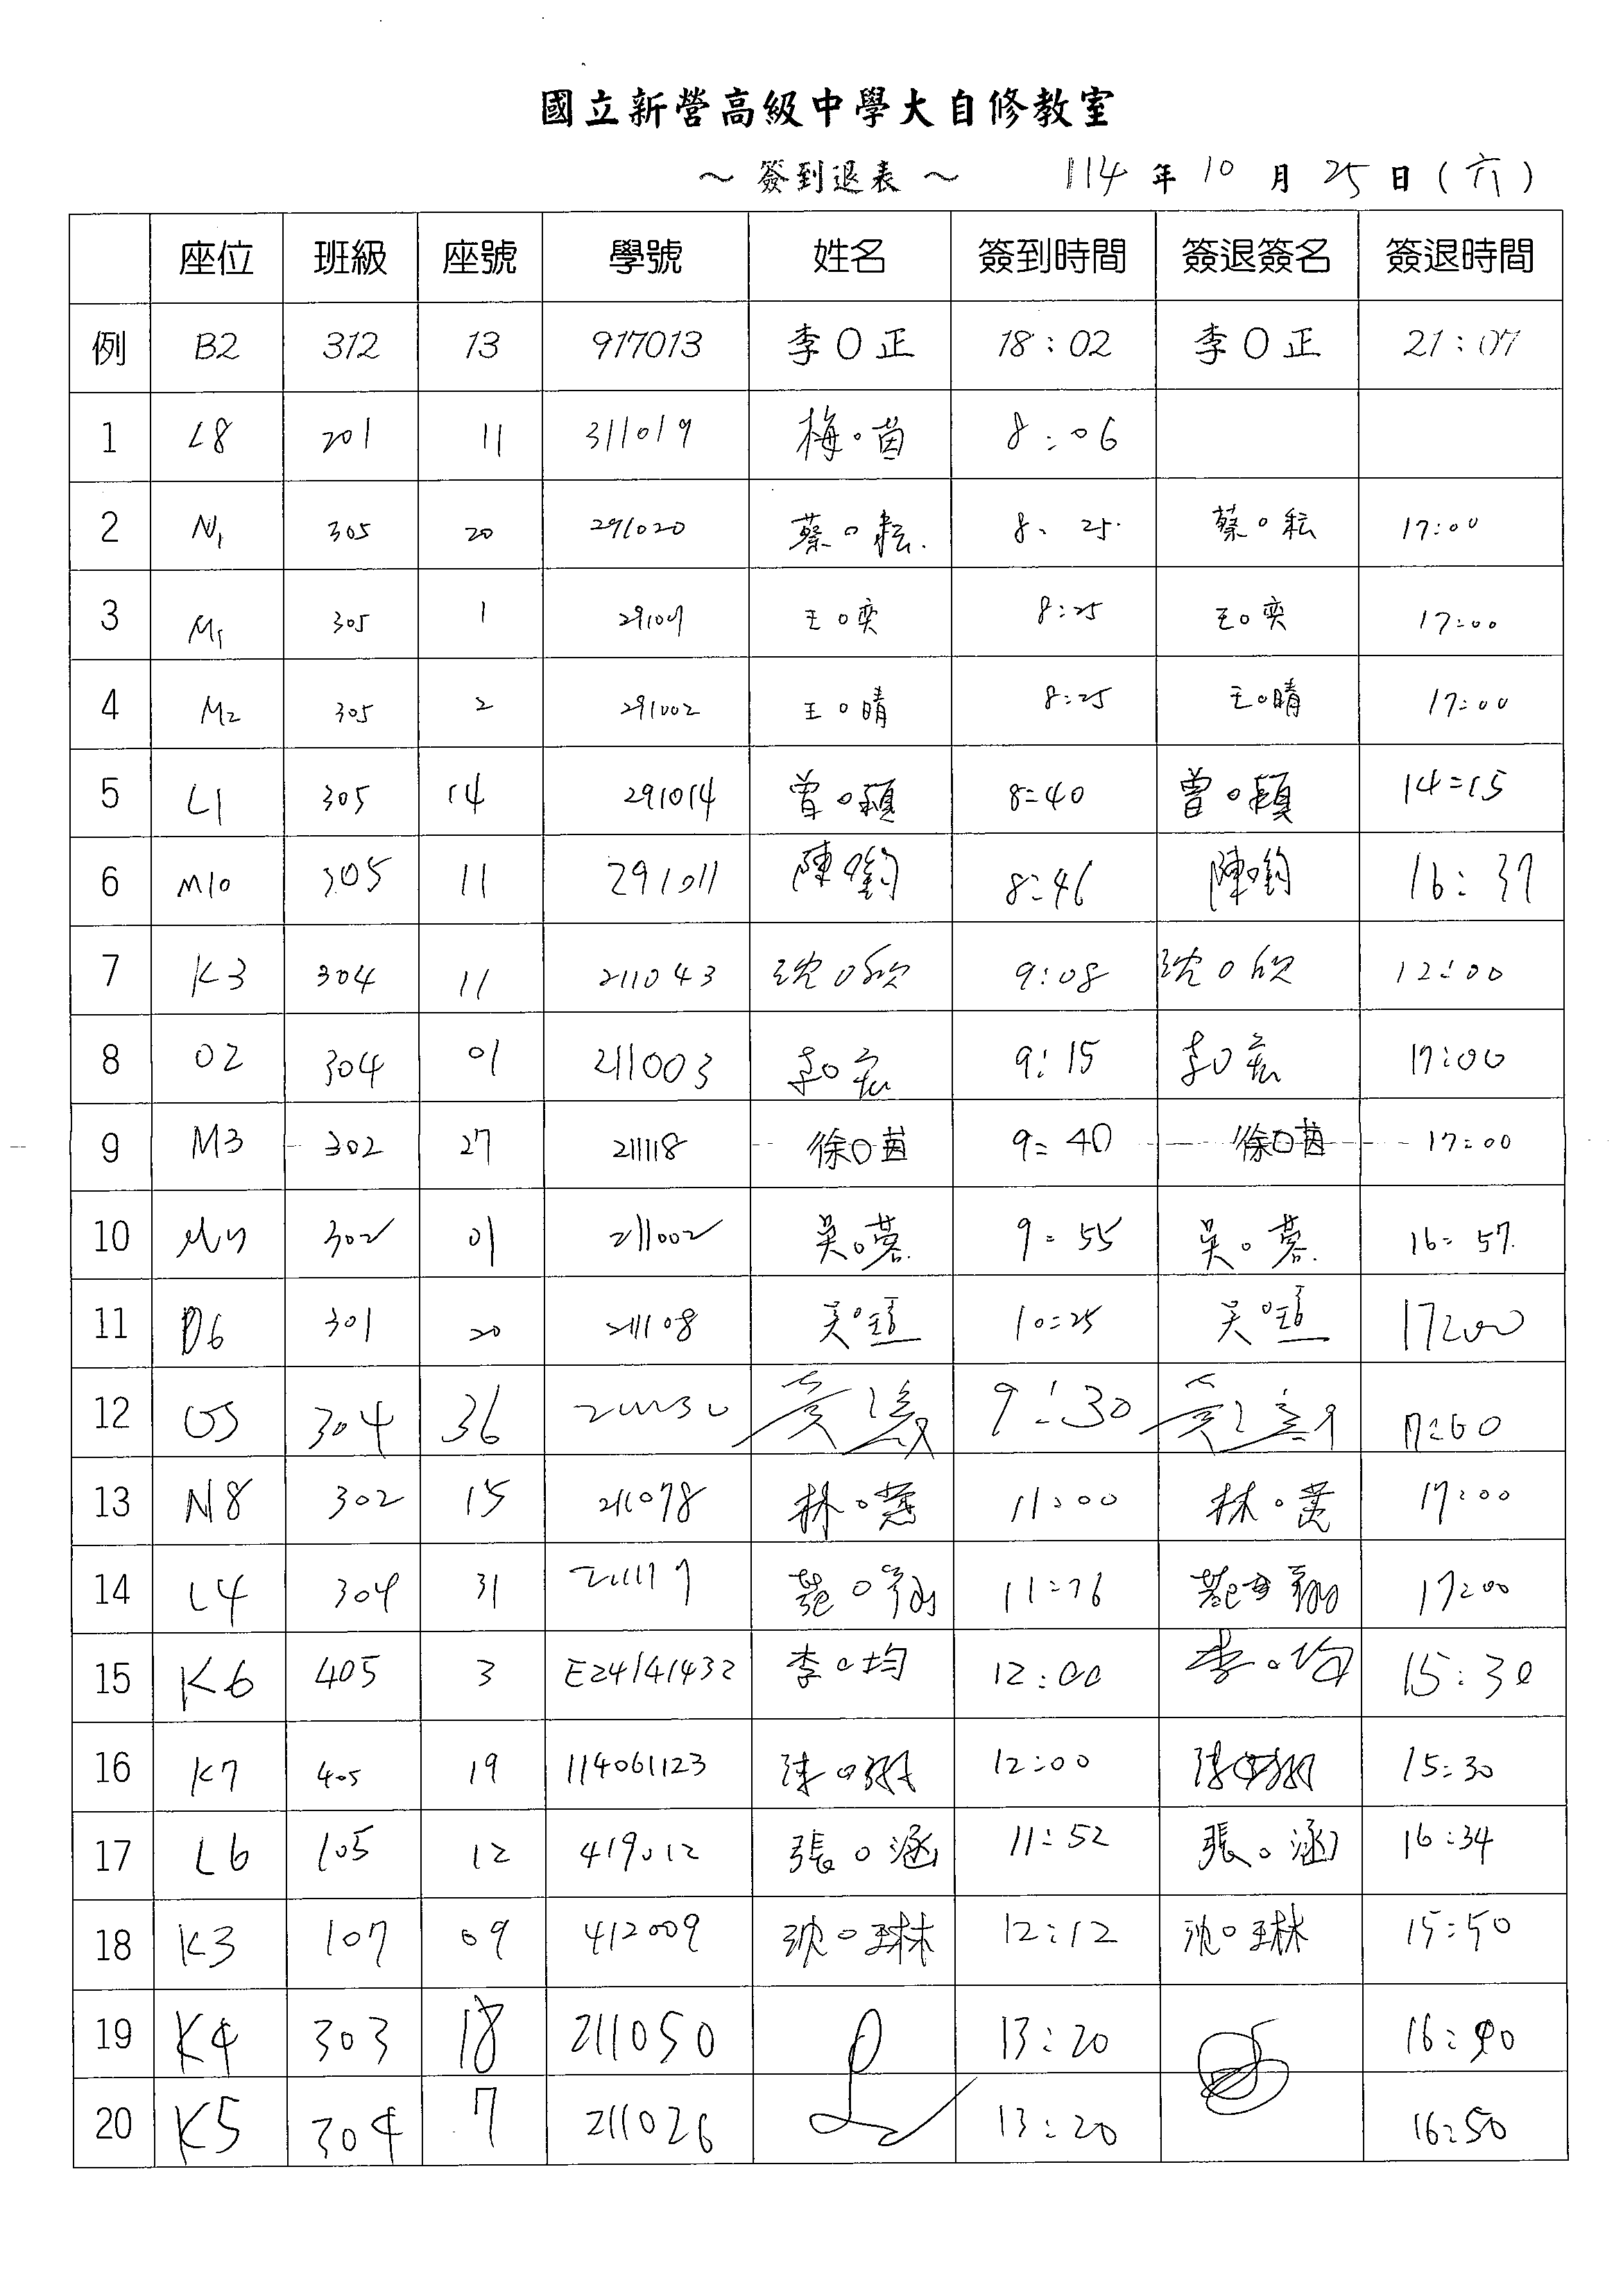 國立新營高級中學大自修教室
～ 簽到退表 ～ 114 年 10 月 25 日 ( 六 )
座位 班級 座號 學號 姓名 簽到時間 簽退簽名 簽退時間
例 B2 312 13 917013 李O正 18:02 李O正 21:07
1 L8 201 11 311019 梅○茵 8:06
2 N1 305 20 291020 蔡○耘 8:25 蔡○耘 17:00
3 M1 305 1 291001 王○奕 8:25 王○奕 17:00
4 M2 305 2 291002 王○晴 8:25 王○晴 17:00
5 L1 305 14 291014 曾○穎 8:40 曾○穎 14:15
6 M10 305 11 291011 陳○ 8:46 陳○ 16:37
7 K3 304 11 211043 沈○欣 9:08 沈○欣 12:00
8 O2 304 01 211003 李○宏 9:15 李○宏 17:00
9 M3 302 27 211118 徐○茵 9:40 徐○茵 17:00
10 302 01 211002 吳○蓉 9:55 吳○蓉 16:57
11 D6 301 20 211108 吴○ 10:25 吴○ 17:00
12 O5 304 36 9:30 17:00
13 N8 302 15 211078 林○蕙 11:00 林○蕙 17:00
14 L4 304 31 11:26 17:00
15 K6 405 3 E24141432 李○均 12:00 李○均 15:30
16 K7 405 19 114061123 12:00 15:30
17 L6 105 12 419012 張○涵 11:52 張○涵 16:34
18 K3 107 09 412009 沈○琳 12:12 沈○琳 15:50
19 K4 303 18 211050 13:20 16:
20 K5 304 7 211026 13:20 16:50